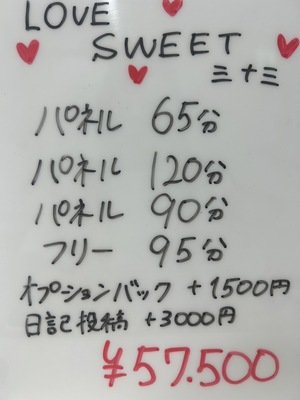 LOVE
SWEET
ミナミ
パネル 65分
パネル 120分
パネル 90分
フリー 95分
オプションバック +1500円
日記投稿 +3000円
¥57.500